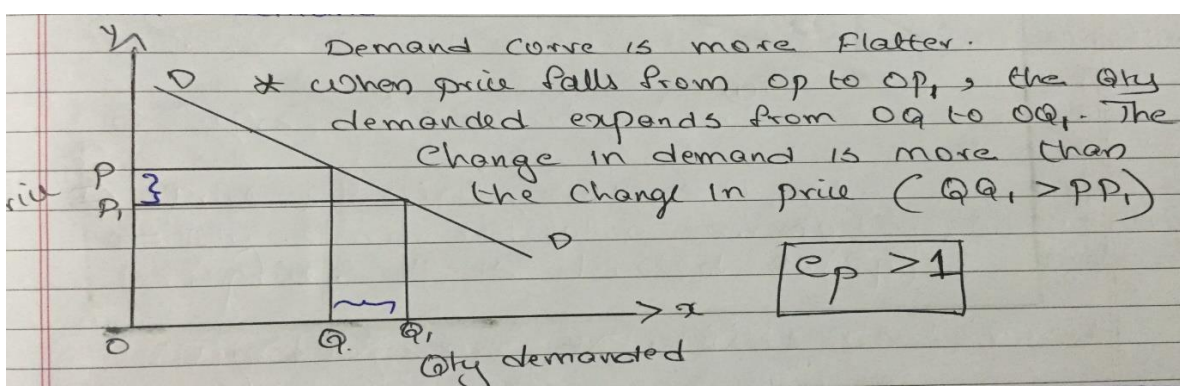 Y
Demand curve is more flatter.
D
* When price falls from OP to OP₁, the Qty
demanded expands from OQ to OQ₁. The
Change in demand is more than
the change in price (QQ₁ > PP₁)
P
P₁
D
ep > 1
x
O
Q.
Q₁
Qty demanded